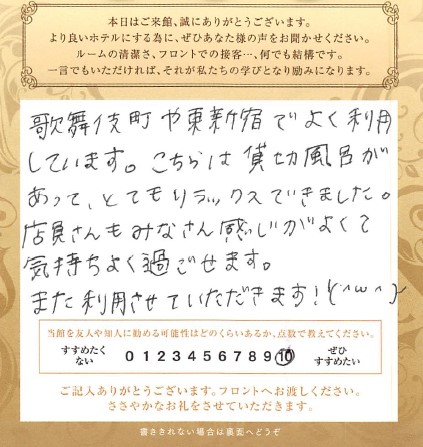 本日はご来館、誠にありがとうございます。
より良いホテルにする為に、ぜひあなた様の声をお聞かせください。
ルームの清潔さ、フロントでの接客…、何でも結構です。
一言でもいただければ、それが私たちの学びとなり励みになります。
歌舞伎町や東新宿でよく利用
しています。こちらは貸切風呂が
あって、とてもリラックスできました。
店員さんもみなさん感じがよくて
気持ちよく過ごせます。
また利用させていただきます!(^ω^)
当館を友人や知人に勧める可能性はどのくらいあるか、点数で教えてください。
すすめたくない 0 1 2 3 4 5 6 7 8 9 10 ぜひすすめたい
ご記入ありがとうございます。フロントへお渡しください。
ささやかなお礼をさせていただきます。
書ききれない場合は裏面へどうぞ